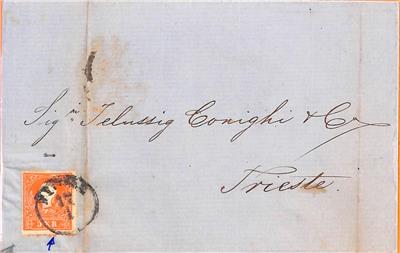 Sig.ri Jelussig Conighi & C.
Trieste.
5 KR